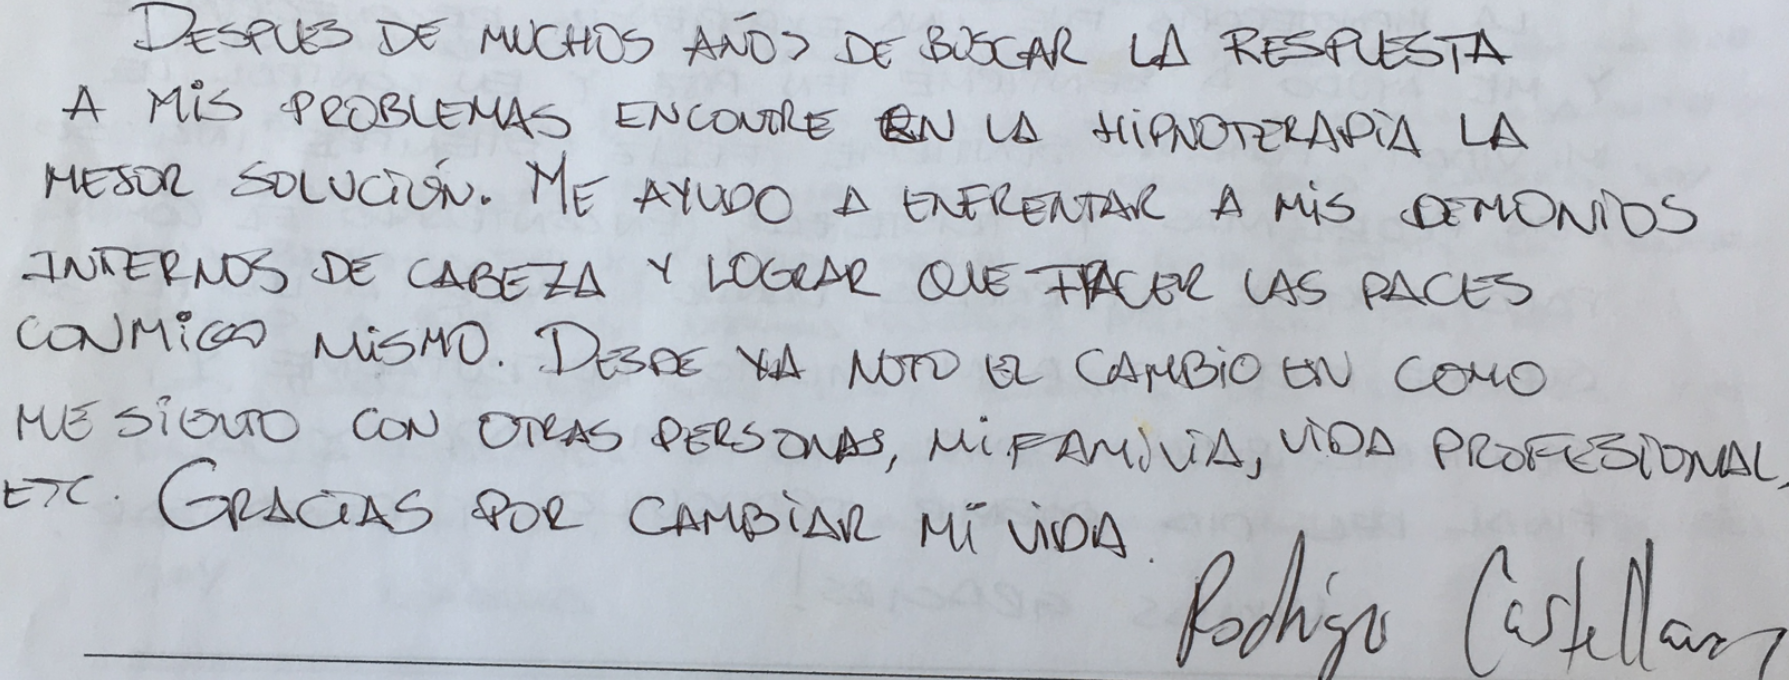 DESPUES DE MUCHOS AÑOS DE BUSCAR LA RESPUESTA
A MIS PROBLEMAS ENCONTRE EN LA HIPNOTERAPIA LA
MEJOR SOLUCIÓN. ME AYUDO A ENFRENTAR A MIS DEMONIOS
INTERNOS DE CABEZA Y LOGRAR QUE HACER LAS PACES
CONMIGO MISMO. DESDE YA NOTO EL CAMBIO EN COMO
ME SIENTO CON OTRAS PERSONAS, MI FAMILIA, VIDA PROFESIONAL,
ETC. GRACIAS POR CAMBIAR MI VIDA.
Rodrigo